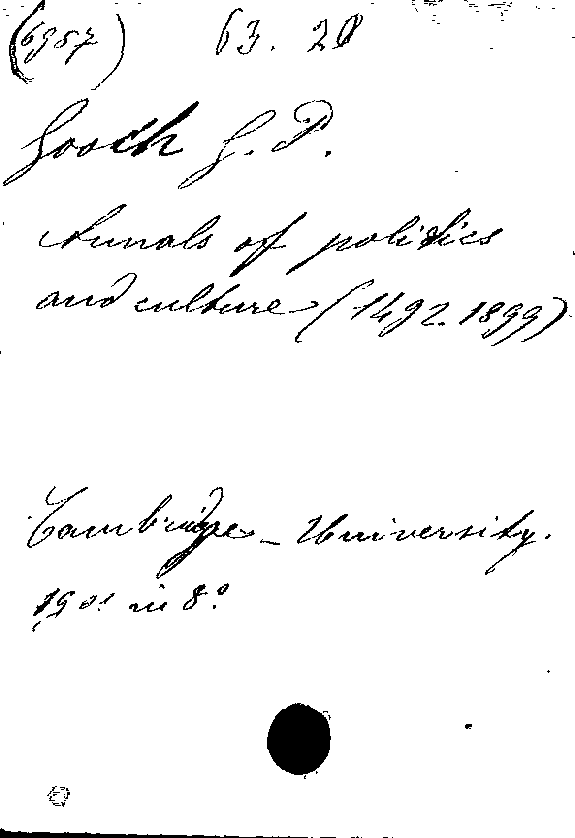 (6957) 63. 28
Gooch G. P.
Annals of politics
and culture (1492-1899)
Cambridge - University.
1901 in 8º